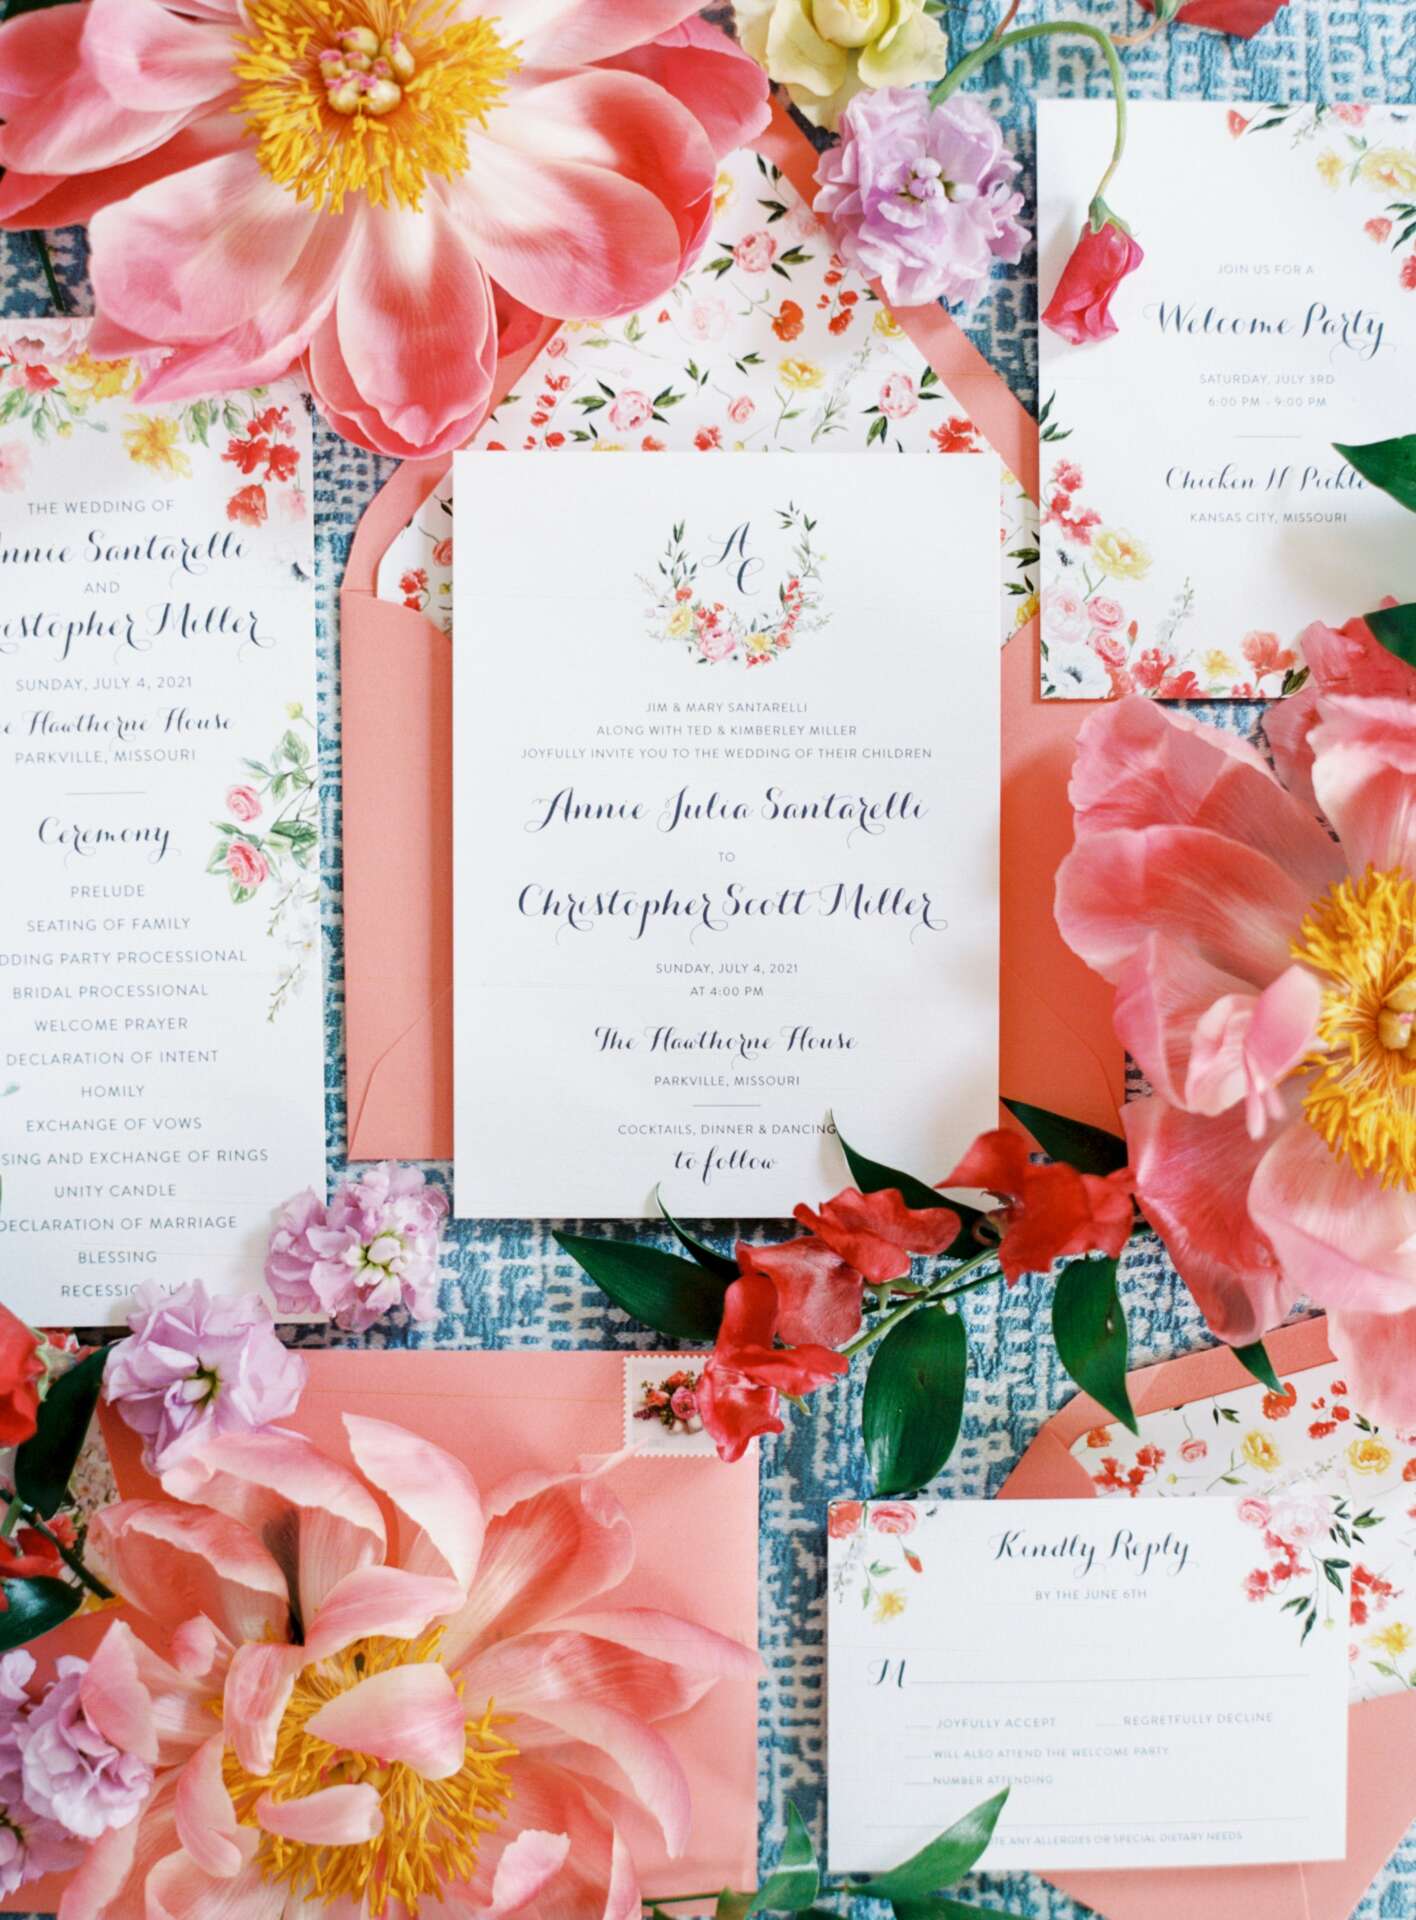 THE WEDDING OF
Santarelli
AND
Miller
SUNDAY, JULY 4, 2021
Hawthorne House
PARKVILLE, MISSOURI
Ceremony
PRELUDE
SEATING OF FAMILY
PARTY PROCESSIONAL
BRIDAL PROCESSIONAL
WELCOME PRAYER
DECLARATION OF INTENT
HOMILY
EXCHANGE OF VOWS
AND EXCHANGE OF RINGS
UNITY CANDLE
DECLARATION OF MARRIAGE
BLESSING
A
C
JIM & MARY SANTARELLI
ALONG WITH TED & KIMBERLEY MILLER
JOYFULLY INVITE YOU TO THE WEDDING OF THEIR CHILDREN
Annie Julia Santarelli
TO
Christopher Scott Miller
SUNDAY, JULY 4, 2021
AT 4:00 PM
The Hawthorne House
PARKVILLE, MISSOURI
COCKTAILS, DINNER & DANCING
to follow
JOIN US FOR A
Welcome Party
SATURDAY, JULY 3RD
6:00 PM - 9:00 PM
Chicken N Pickle
KANSAS CITY, MISSOURI
Kindly Reply
BY THE JUNE 6TH
M
JOYFULLY ACCEPT REGRETFULLY DECLINE
WILL ALSO ATTEND THE WELCOME PARTY
NUMBER ATTENDING
ANY ALLERGIES OR SPECIAL DIETARY NEEDS